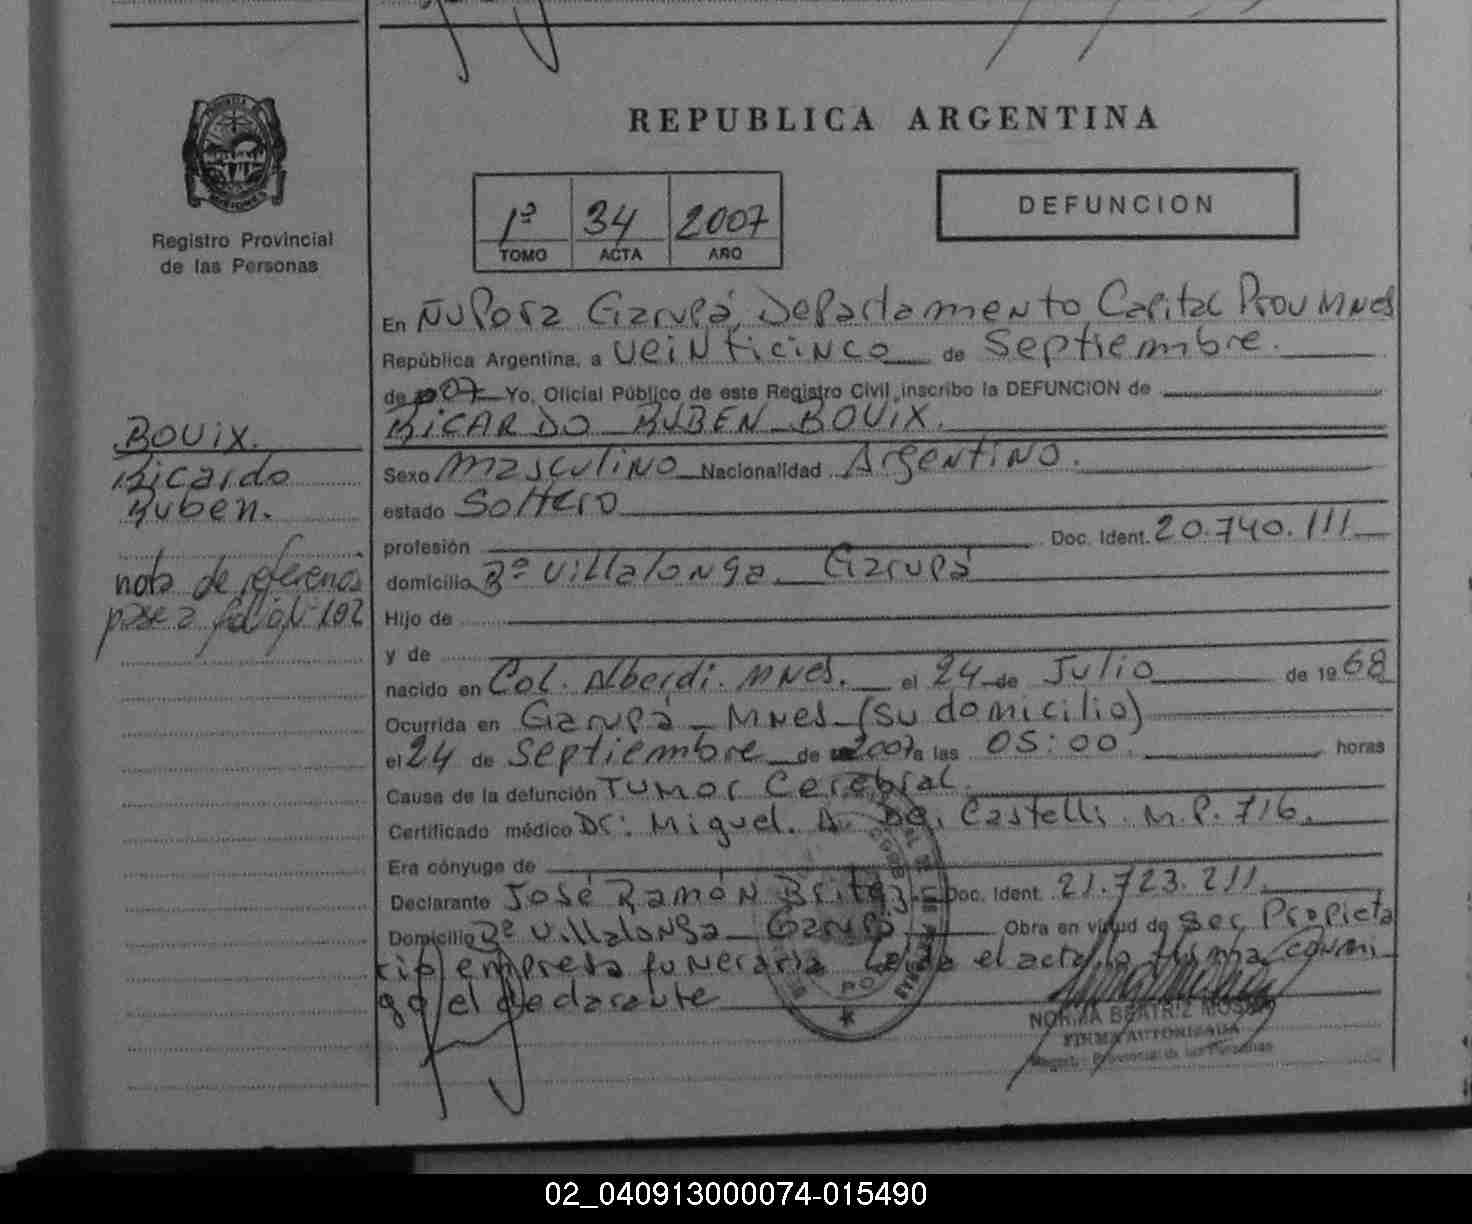 REPUBLICA ARGENTINA
Registro Provincial
de las Personas
1º 34 2007
TOMO ACTA AÑO
DEFUNCION
En Ñu Pora Garupá, Departamento Capital Prov Mnes
República Argentina, a veinticinco de Septiembre.
de 07 Yo, Oficial Público de este Registro Civil, inscribo la DEFUNCION de
RICARDO RUBEN BOUIX.
BOUIX.
Ricardo
Ruben.
nota de referencia
pase a folio Nº 102
Sexo masculino Nacionalidad Argentino.
estado Soltero
profesión Doc. Ident. 20.740.111
domicilio Bº Villalonga. Garupá
Hijo de
y de
nacido en Col. Alberdi. Mnes. el 24 de Julio de 1968
Ocurrida en Garupá - Mnes (su domicilio)
el 24 de septiembre de 2007 a las 05:00. horas
Causa de la defunción Tumor Cerebral.
Certificado médico Dr: Miguel. A. Dei Castelli. M.P. 716.
Era cónyuge de
Declarante José Ramón Britez Doc. Ident. 21.723.211
Domicilio Bº Villalonga Garupá Obra en virtud de ser Propieta
rio empresa funeraria Leída el acta la firma conmi
go el declarante
NORMA BEATRIZ
FIRMA AUTORIZADA
Registro Provincial de las Personas
02_040913000074-015490